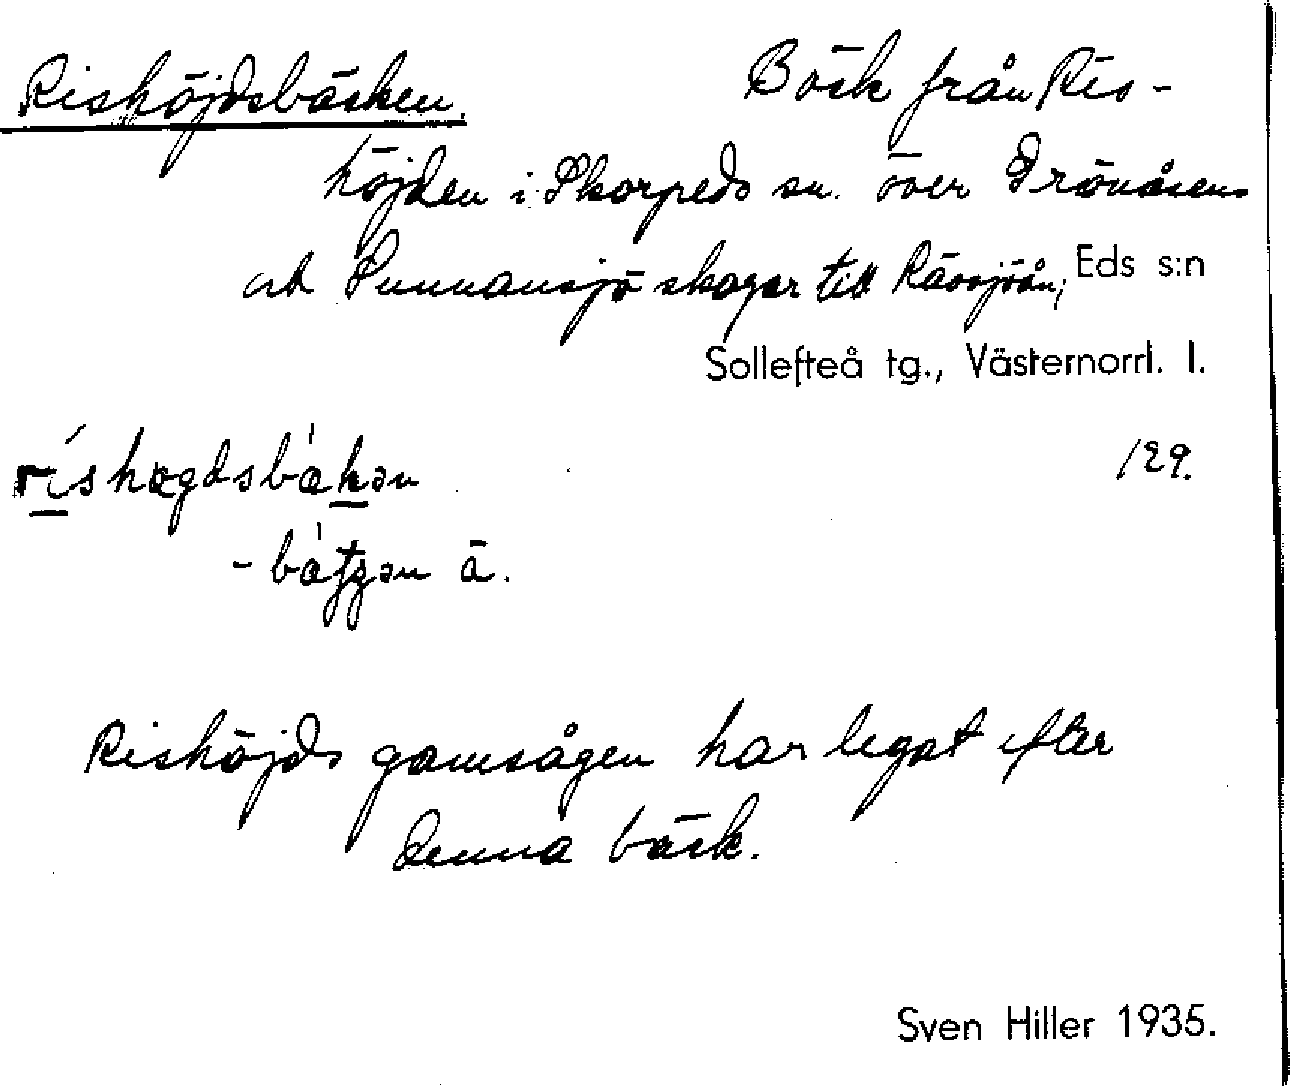 Rishöjdsbäcken. Bäck från Ris-
höjden i Skorpeds sn. över Grönåsens
och Sunnansjö skogar till Rävsjöån, Eds s:n
Sollefteå tg., Västernorrl. l.
129.
-bát̯ʒən ä.
Rishöjds gamsågen har legat efter
denna bäck.
Sven Hiller 1935.